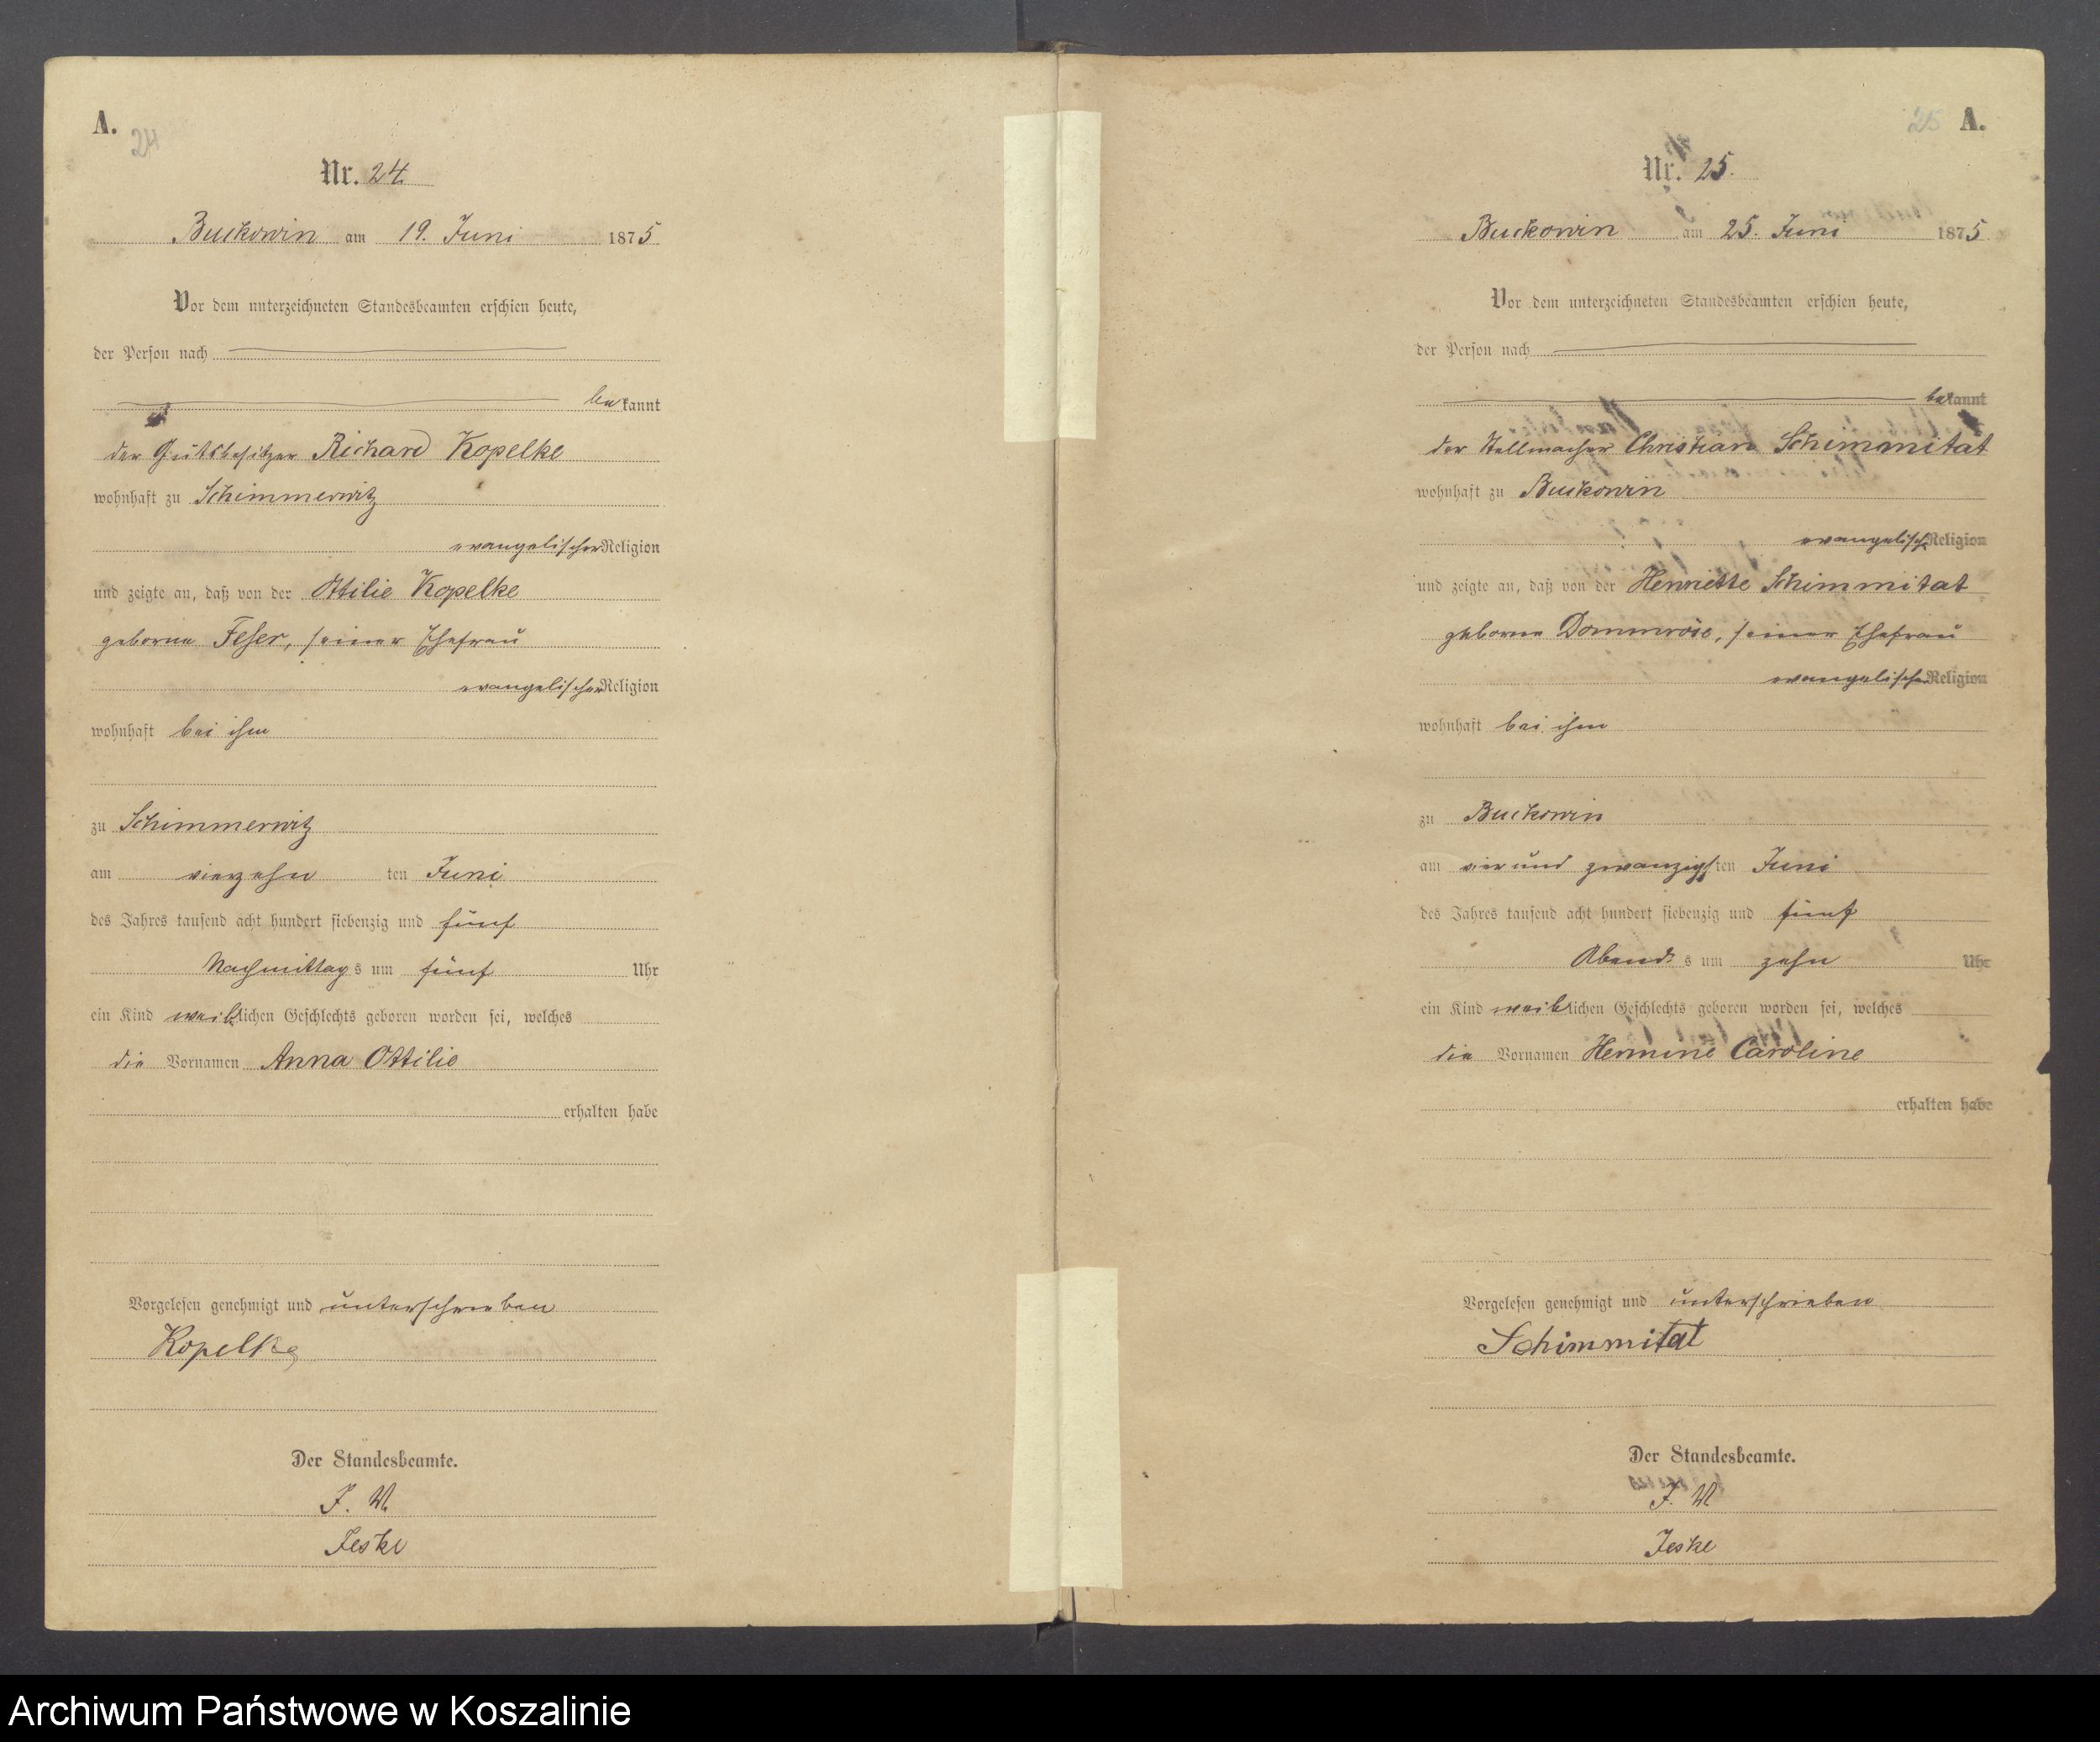 A.
24
Nr. 24.
Buckowin am 19. Juni 1875
Vor dem unterzeichneten Standesbeamten erschien heute,
der Person nach
bekannt
der Gutsbesitzer Richard Kopelke
wohnhaft zu Schimmerwitz
evangelischer Religion
und zeigte an, daß von der Ottilie Kopelke
geborne Feser, seiner Ehefrau
evangelischer Religion
wohnhaft bei ihm
zu Schimmerwitz
am vierzehn ten Juni
des Jahres tausend acht hundert siebenzig und fünf
Nachmittags um fünf Uhr
ein Kind weiblichen Geschlechts geboren worden sei, welches
die Vornamen Anna Ottilie
erhalten habe
Vorgelesen genehmigt und unterschrieben
Kopelke
Der Standesbeamte.
J. V.
Jeske
25 A.
Nr. 25.
Buckowin am 25. Juni 1875
Vor dem unterzeichneten Standesbeamten erschien heute,
der Person nach
bekannt
der Stellmacher Christian Schimmitat
wohnhaft zu Buckowin
evangelisch Religion
und zeigte an, daß von der Henriette Schimmitat
geborne Dommröse, seiner Ehefrau
evangelischer Religion
wohnhaft bei ihm
zu Buckowin
am vier und zwanzigsten Juni
des Jahres tausend acht hundert siebenzig und fünf
Abends s um zehn Uhr
ein Kind weiblichen Geschlechts geboren worden sei, welches
die Vornamen Hermine Caroline
erhalten habe
Vorgelesen genehmigt und unterschrieben
Schimmitat
Der Standesbeamte.
J. V.
Jeske
Archiwum Państwowe w Koszalinie